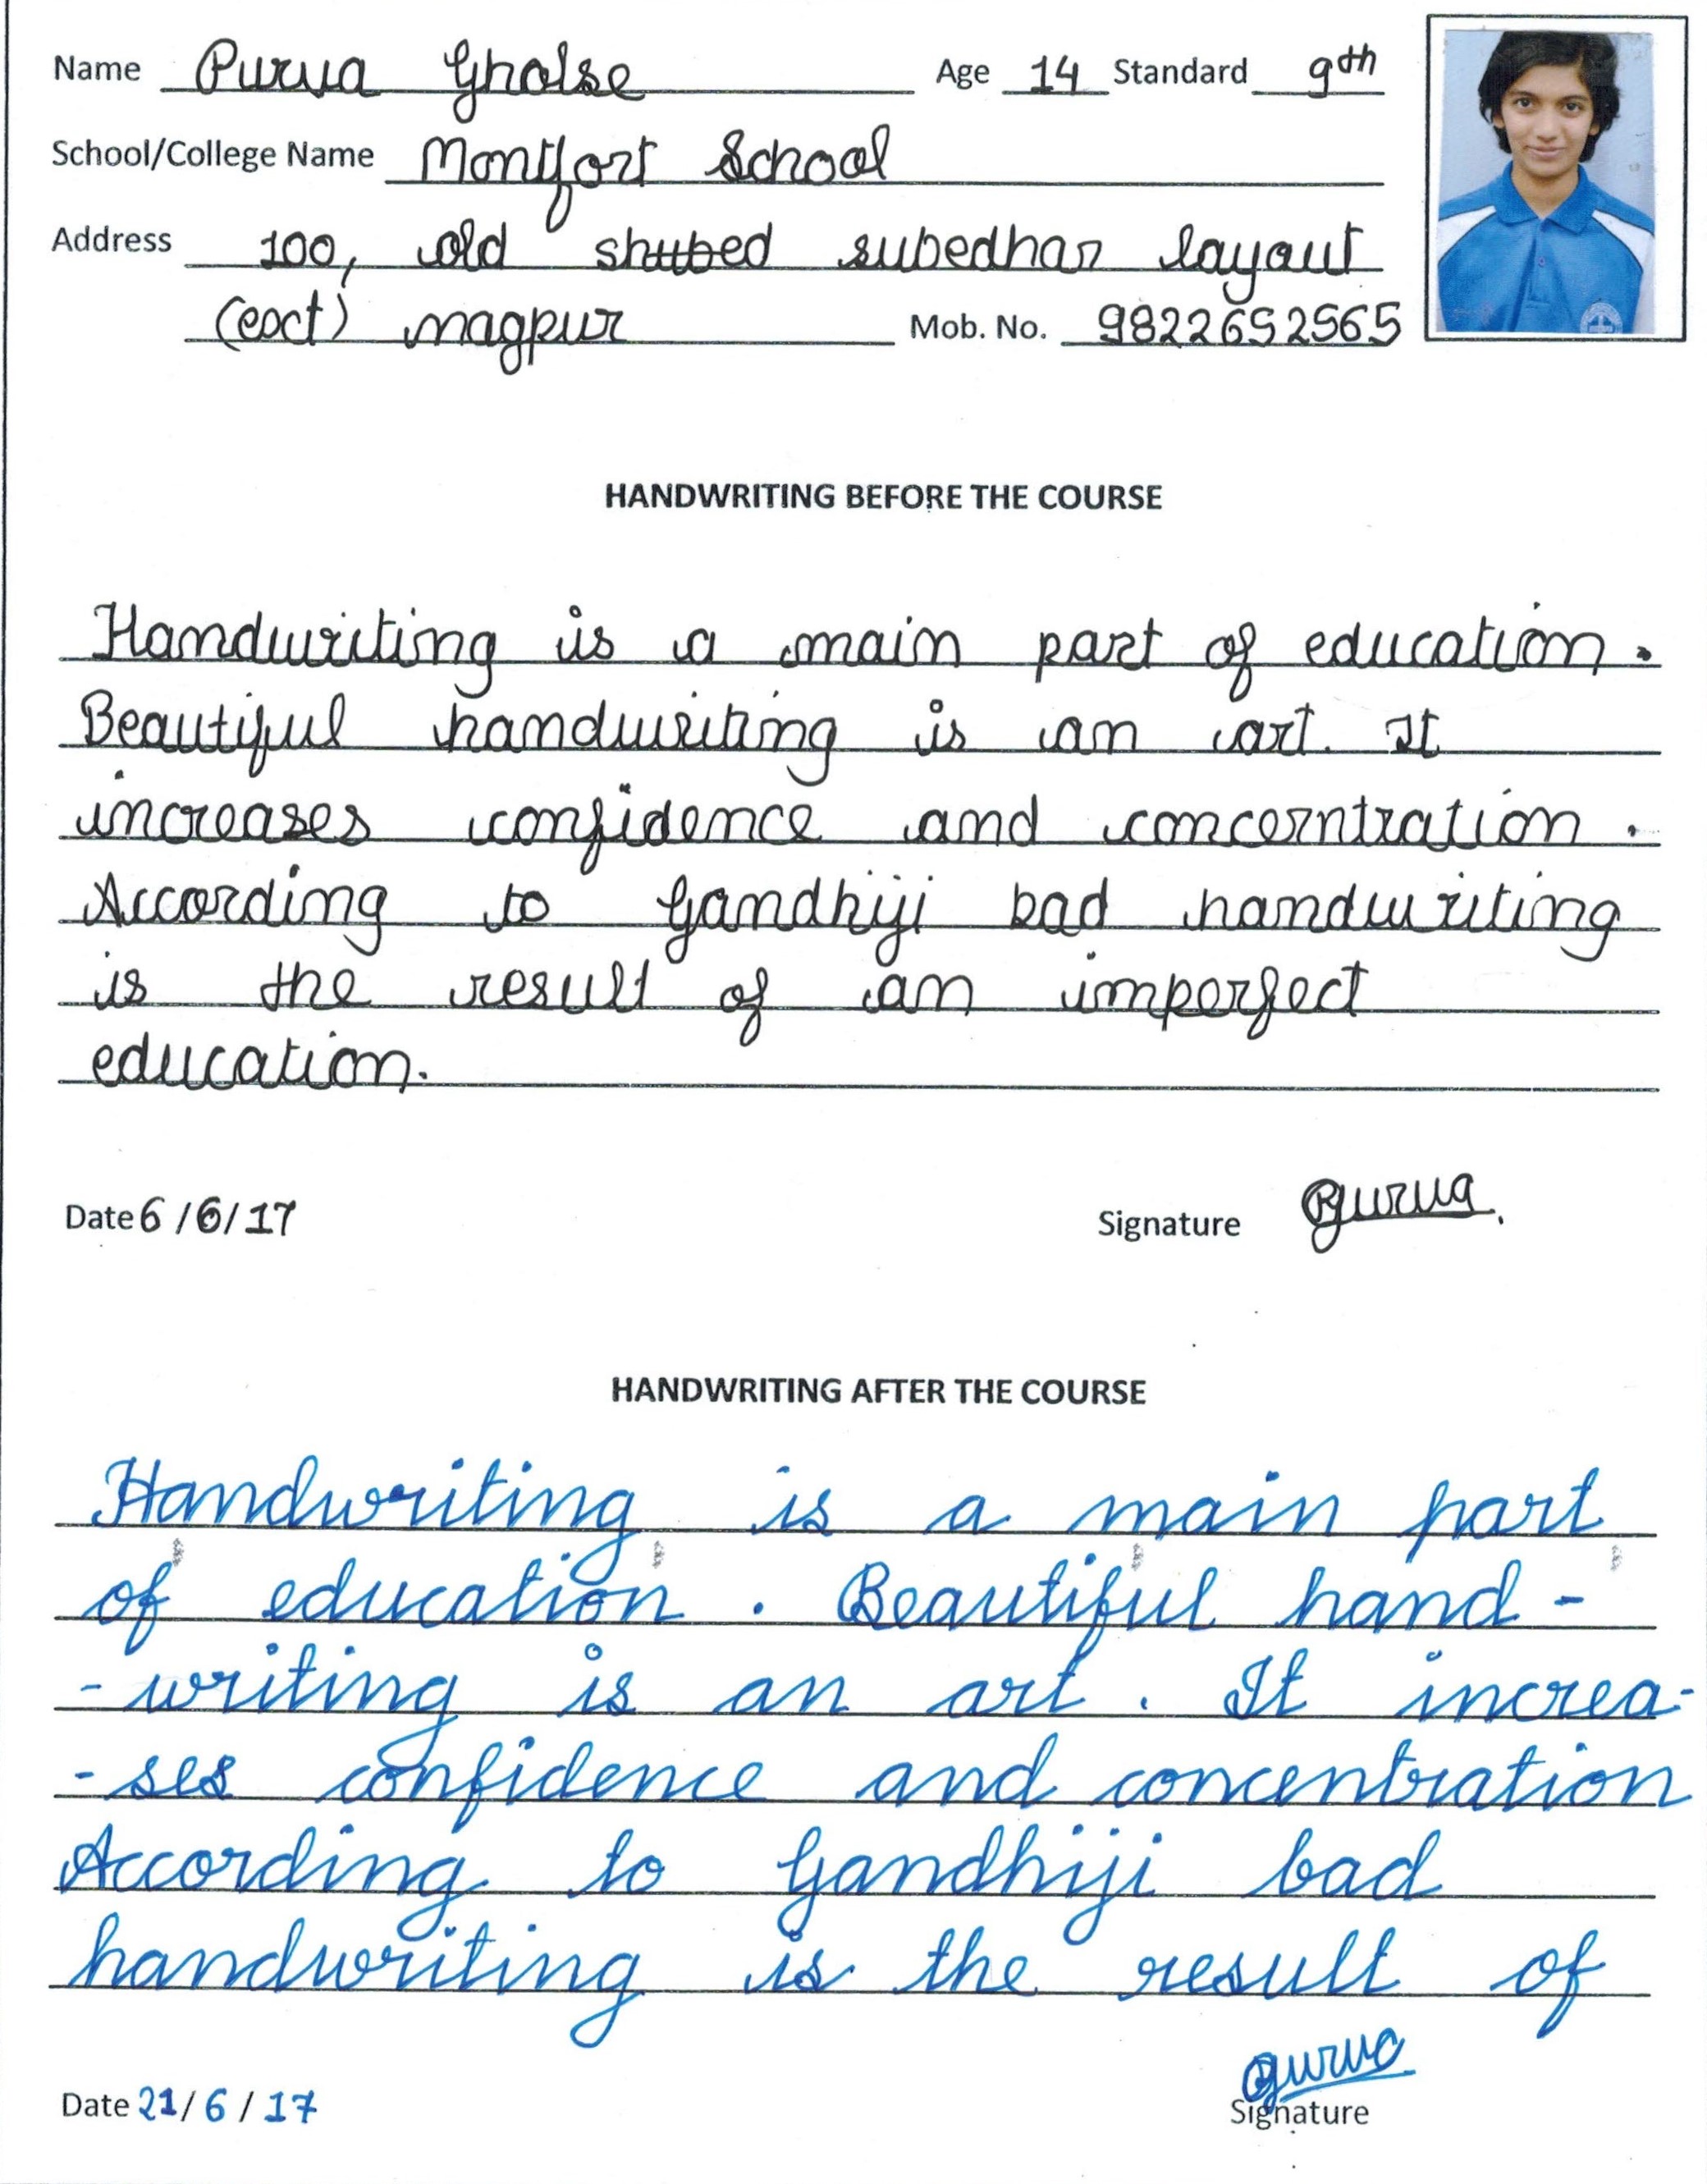 Name Purva Gholse Age 14 Standard 9th
School/College Name Montfort School
Address 100, old shubed subedhar layout
(exct) nagpur Mob. No. 9822692565
HANDWRITING BEFORE THE COURSE
Handwriting is a main part of education.
Beautiful handwriting is an art. It
increases confidence and concerntration.
According to Gandhiji bad handwriting
is the result of an imperfect
education.
Date 6/6/17 Signature Purva
HANDWRITING AFTER THE COURSE
Handwriting is a main part
of education. Beautiful hand-
-writing is an art. It increa-
-ses confidence and concentration
According to Gandhiji bad
handwriting is the result of
Purva
Date 21/6/17 Signature